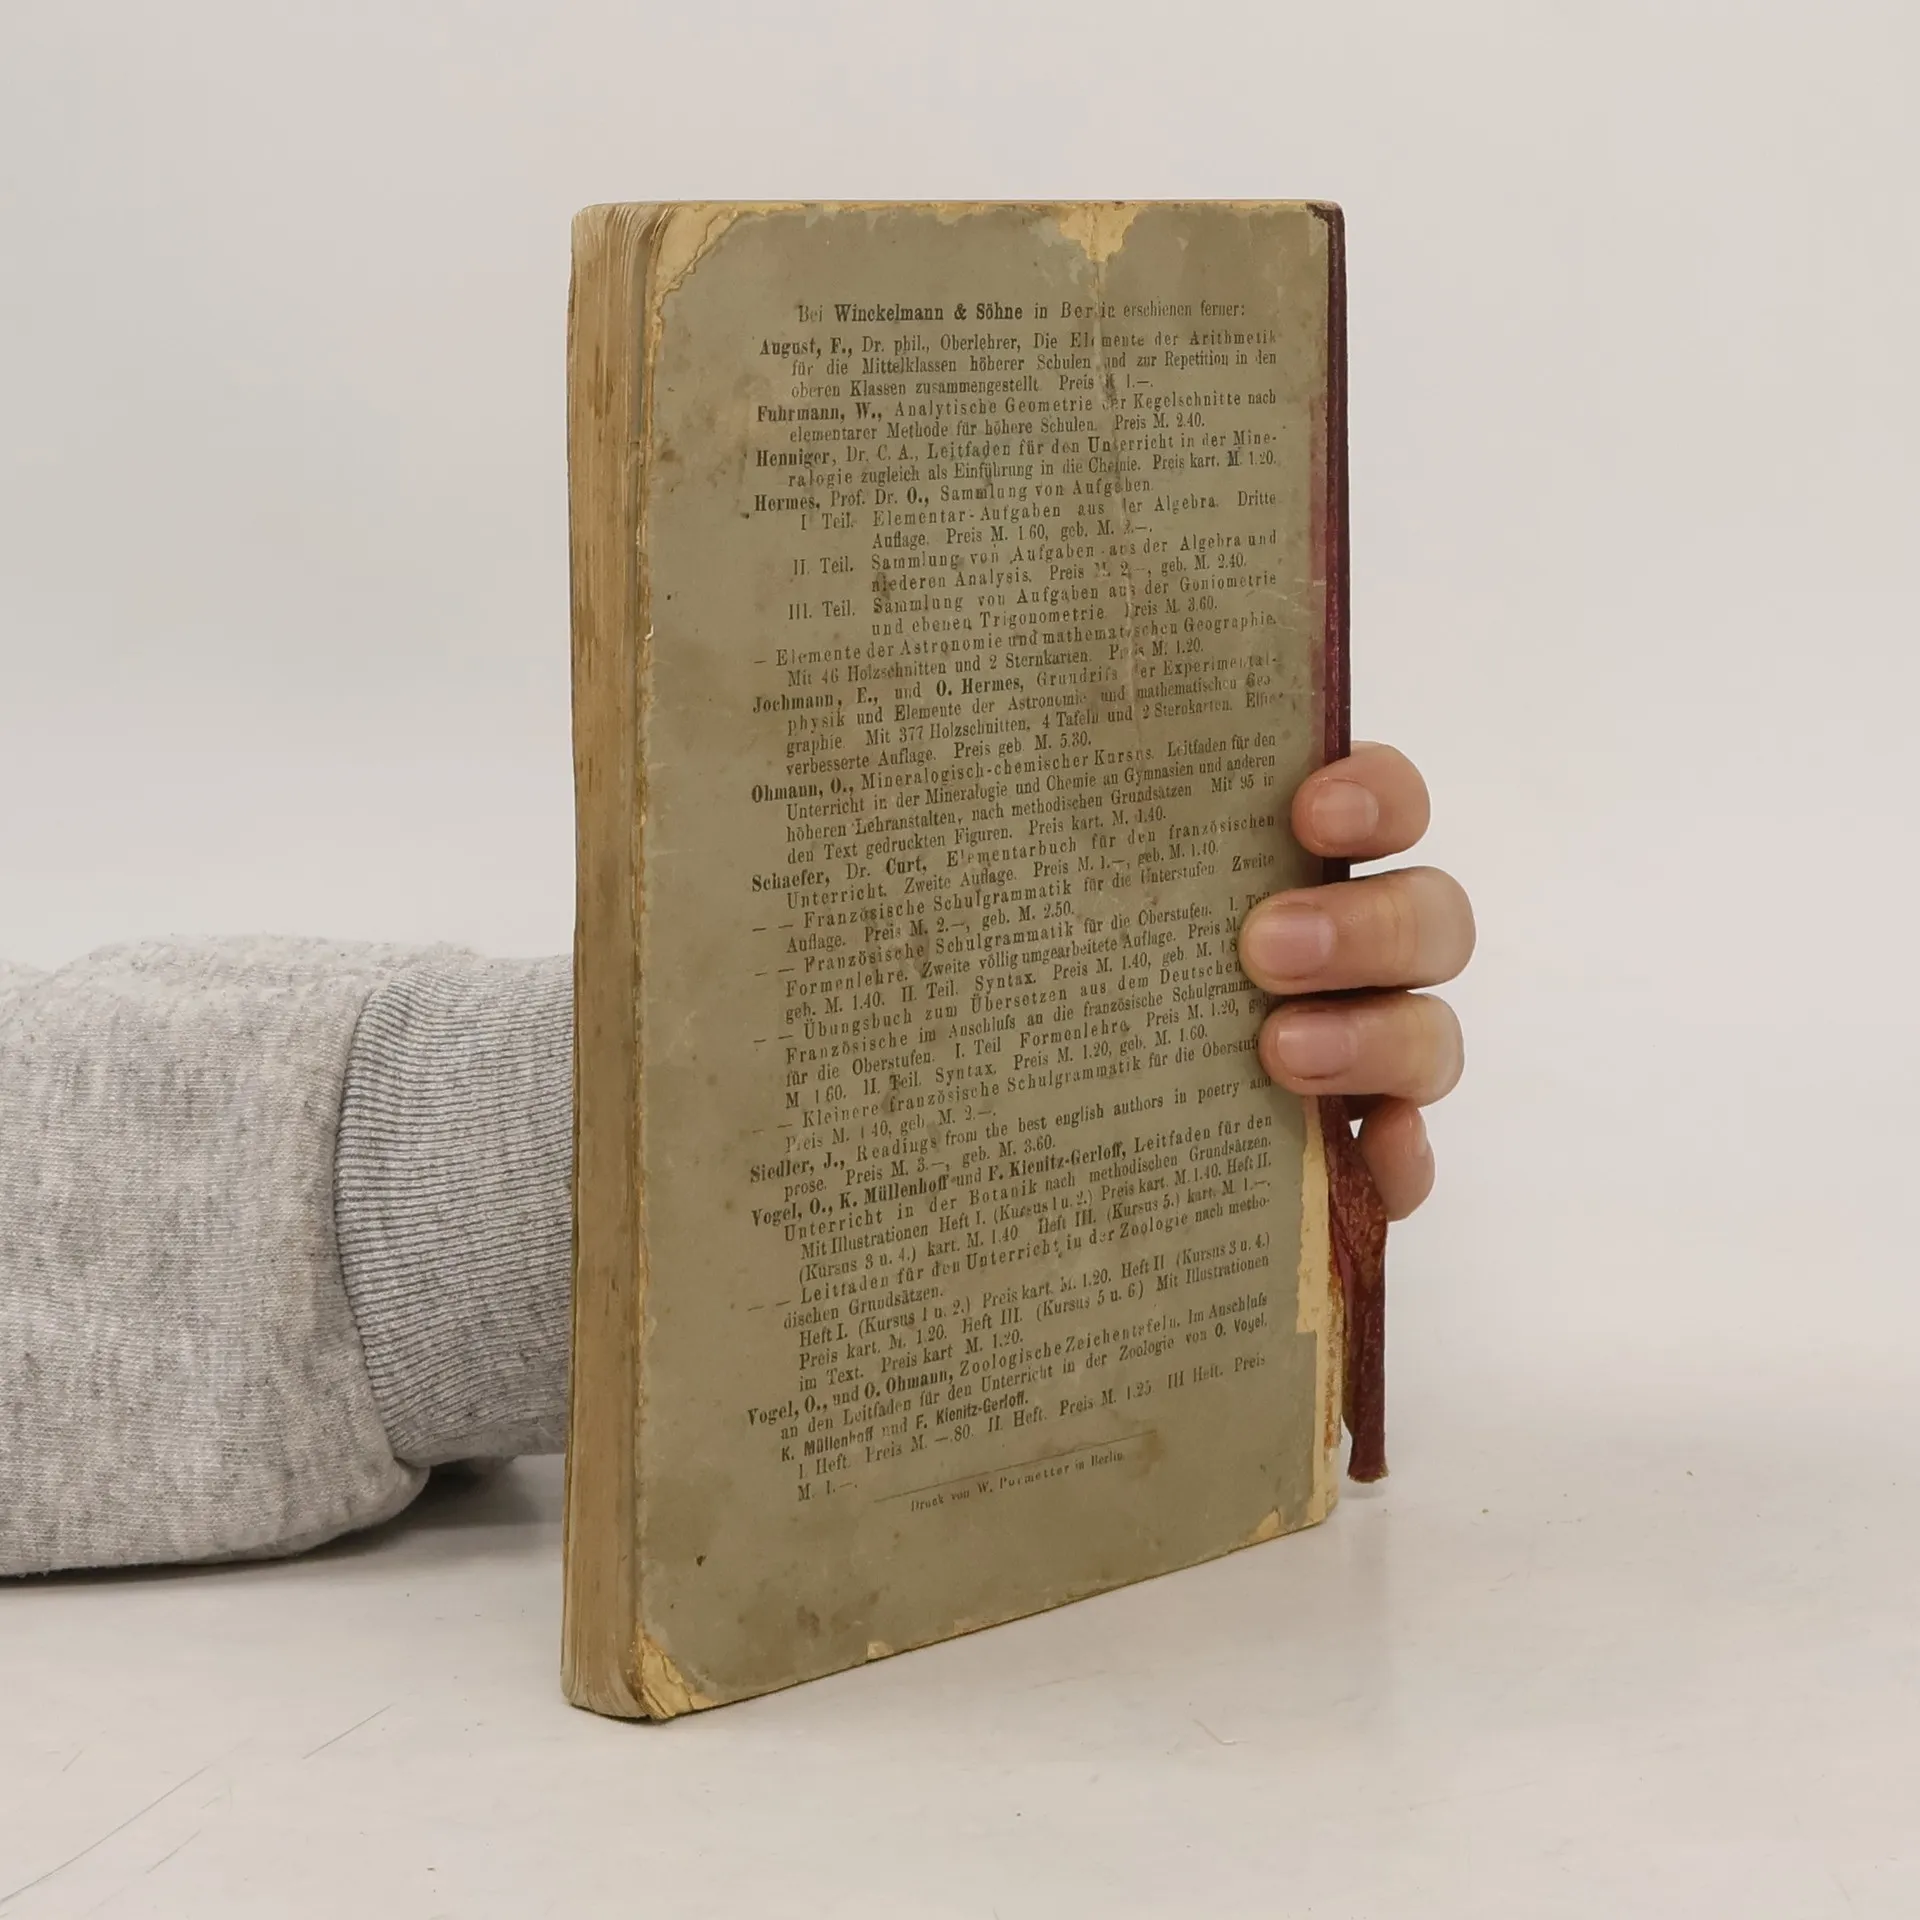 Bei Winckelmann & Söhne in Berlin erschienen ferner:
August, F., Dr. phil., Oberlehrer, Die Elemente der Arithmetik
für die Mittelklassen höherer Schulen und zur Repetition in den
oberen Klassen zusammengestellt. Preis M. 1.—.
Fuhrmann, W., Analytische Geometrie der Kegelschnitte nach
elementarer Methode für höhere Schulen. Preis M. 2.40.
Henniger, Dr. C. A., Leitfaden für den Unterricht in der Mine-
ralogie zugleich als Einführung in die Chemie. Preis kart. M. 1.20.
Hermes, Prof. Dr. O., Sammlung von Aufgaben.
I Teil. Elementar-Aufgaben aus der Algebra. Dritte
Auflage. Preis M. 1.60, geb. M. 2.—.
II. Teil. Sammlung von Aufgaben aus der Algebra und
niederen Analysis. Preis M. 2.—, geb. M. 2.40.
III. Teil. Sammlung von Aufgaben aus der Goniometrie
und ebenen Trigonometrie. Preis M. 3.60.
— Elemente der Astronomie und mathematischen Geographie.
Mit 46 Holzschnitten und 2 Sternkarten. Preis M. 1.20.
Jochmann, E., und O. Hermes, Grundriſs der Experimental-
physik und Elemente der Astronomie und mathematischen Geo-
graphie. Mit 377 Holzschnitten, 4 Tafeln und 2 Sternkarten. Elfte
verbesserte Auflage. Preis geb. M. 5.30.
Ohmann, O., Mineralogisch-chemischer Kursus. Leitfaden für den
Unterricht in der Mineralogie und Chemie an Gymnasien und anderen
höheren Lehranstalten, nach methodischen Grundsätzen. Mit 95 in
den Text gedruckten Figuren. Preis kart. M. 1.40.
Schaefer, Dr. Curt, Elementarbuch für den französischen
Unterricht. Zweite Auflage. Preis M. 1.—, geb. M. 1.40.
— — Französische Schulgrammatik für die Unterstufen. Zweite
Auflage. Preis M. 2.—, geb. M. 2.50.
— — Französische Schulgrammatik für die Oberstufen. I. Teil
Formenlehre. Zweite völlig umgearbeitete Auflage. Preis M.
geb. M. 1.40. II. Teil. Syntax. Preis M. 1.40, geb. M.
— — Übungsbuch zum Übersetzen aus dem Deutschen
Französische im Anschluſs an die französische Schulgramma
für die Oberstufen. I. Teil Formenlehre. Preis M. 1.20, geb
M 1.60. II. Teil. Syntax. Preis M. 1.20, geb. M. 1.60.
— — Kleinere französische Schulgrammatik für die Oberstuf
Preis M. 1.40, geb. M. 2.—.
Siedler, J., Readings from the best english authors in poetry and
prose. Preis M. 3.—, geb. M. 3.60.
Vogel, O., K. Müllenhoff und F. Kienitz-Gerloff, Leitfaden für den
Unterricht in der Botanik nach methodischen Grundsätzen.
Mit Illustrationen Heft I. (Kursus 1 u. 2.) Preis kart. M. 1.40. Heft II.
(Kursus 3 u. 4.) kart. M. 1.40 Heft III. (Kursus 5.) kart. M. 1.—.
— — Leitfaden für den Unterricht in der Zoologie nach metho-
dischen Grundsätzen.
Heft I. (Kursus 1 u. 2.) Preis kart. M. 1.20. Heft II (Kursus 3 u. 4.)
Preis kart. M. 1.20. Heft III. (Kursus 5 u. 6.) Mit Illustrationen
im Text. Preis kart M. 1.20.
Vogel, O., und O. Ohmann, Zoologische Zeichentafeln. Im Anschluſs
an den Leitfaden für den Unterricht in der Zoologie von O. Vogel,
K. Müllenhoff und F. Kienitz-Gerloff.
I. Heft. Preis M. —.80. II. Heft. Preis M. 1.25. III Heft. Preis
M. 1.—.
Druck von W. Pormetter in Berlin.